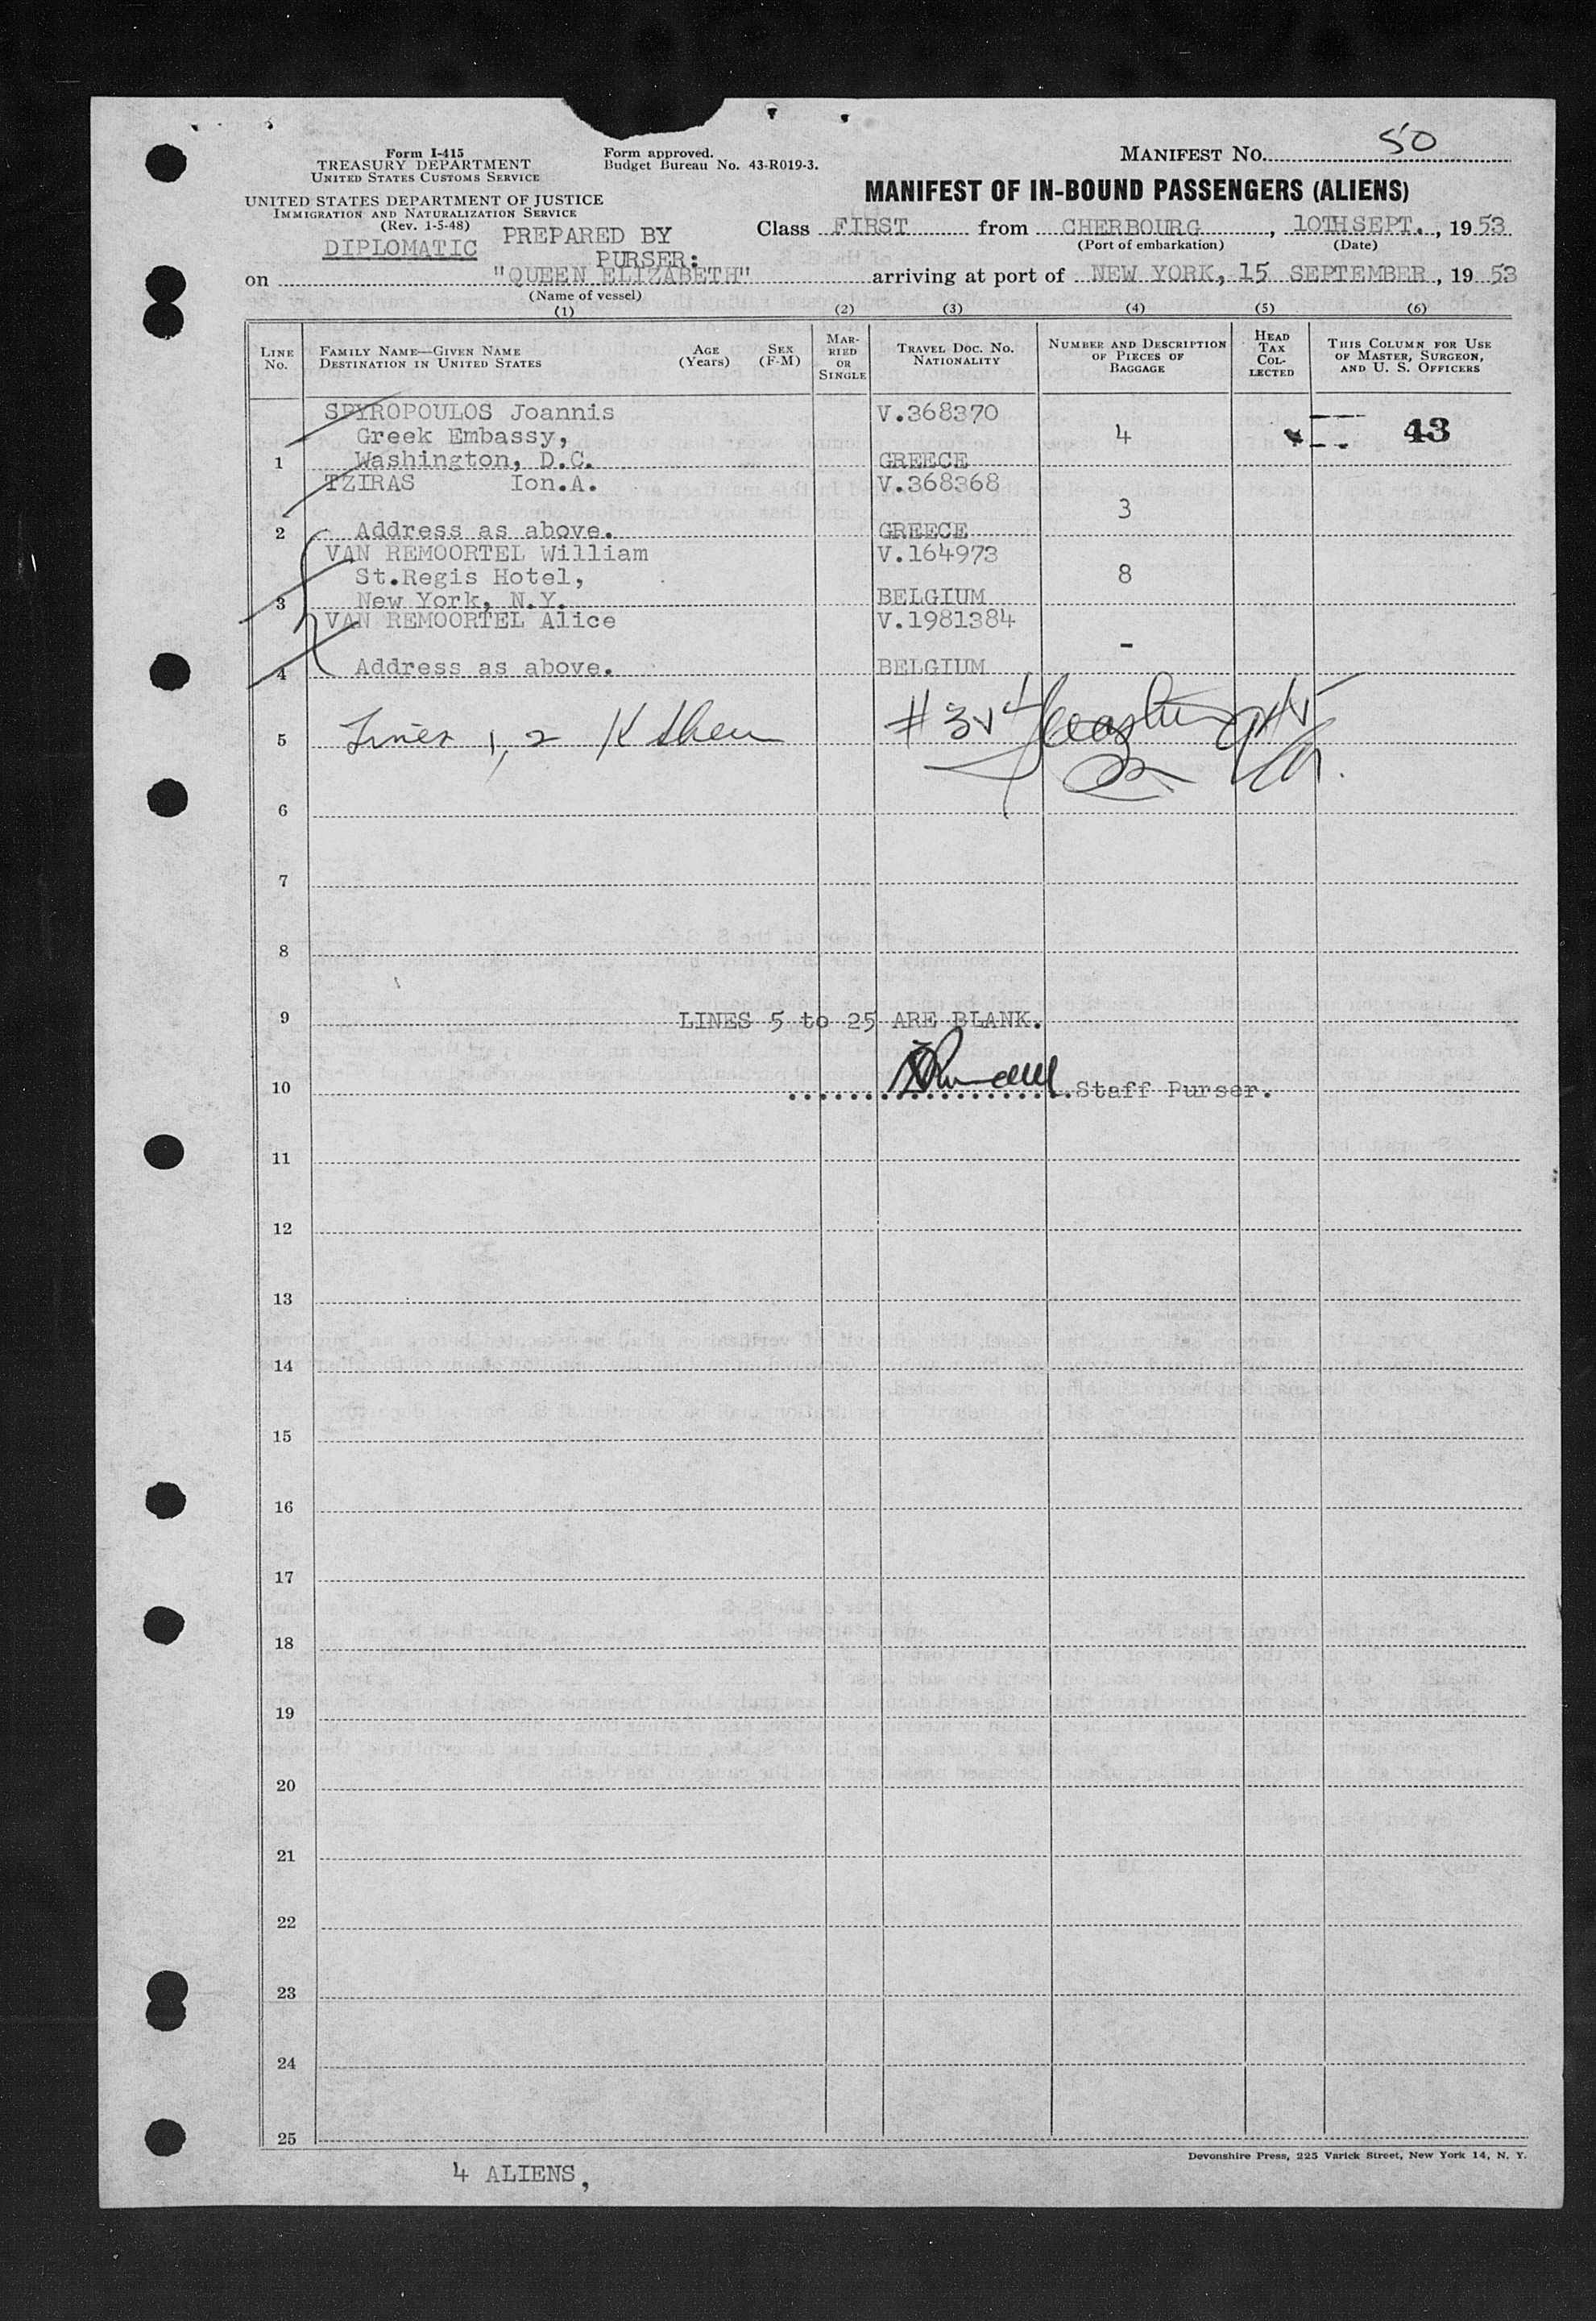 Form I-415
TREASURY DEPARTMENT
UNITED STATES CUSTOMS SERVICE
UNITED STATES DEPARTMENT OF JUSTICE
IMMIGRATION AND NATURALIZATION SERVICE
(Rev. 1-5-48)
Form approved.
Budget Bureau No. 43-R019-3.
MANIFEST NO. 50
MANIFEST OF IN-BOUND PASSENGERS (ALIENS)
DIPLOMATIC
PREPARED BY
PURSER:
Class FIRST from CHERBOURG, 10TH SEPT., 1953
(Port of embarkation) (Date)
on "QUEEN ELIZABETH" arriving at port of NEW YORK, 15 SEPTEMBER, 1953
(Name of vessel)
(1) (2) (3) (4) (5) (6)
LINE No.
FAMILY NAME—GIVEN NAME
DESTINATION IN UNITED STATES
AGE (Years)
SEX (F-M)
MARRIED OR SINGLE
TRAVEL DOC. NO.
NATIONALITY
NUMBER AND DESCRIPTION OF PIECES OF BAGGAGE
HEAD TAX COLLECTED
THIS COLUMN FOR USE OF MASTER, SURGEON, AND U. S. OFFICERS
SPYROPOULOS Joannis V.368370
Greek Embassy, 4 43
1 Washington, D.C. GREECE
TZIRAS Ion.A. V.368368
3
2 Address as above. GREECE
VAN REMOORTEL William V.164973
St.Regis Hotel, 8
3 New York, N.Y. BELGIUM
VAN REMOORTEL Alice V.1981384
-
4 Address as above. BELGIUM
5 Lines 1, 2 # 3 4
6
7
8
9 LINES 5 to 25 ARE BLANK.
10 Staff Purser.
11
12
13
14
15
16
17
18
19
20
21
22
23
24
25
Devonshire Press, 225 Varick Street, New York 14, N. Y.
4 ALIENS,